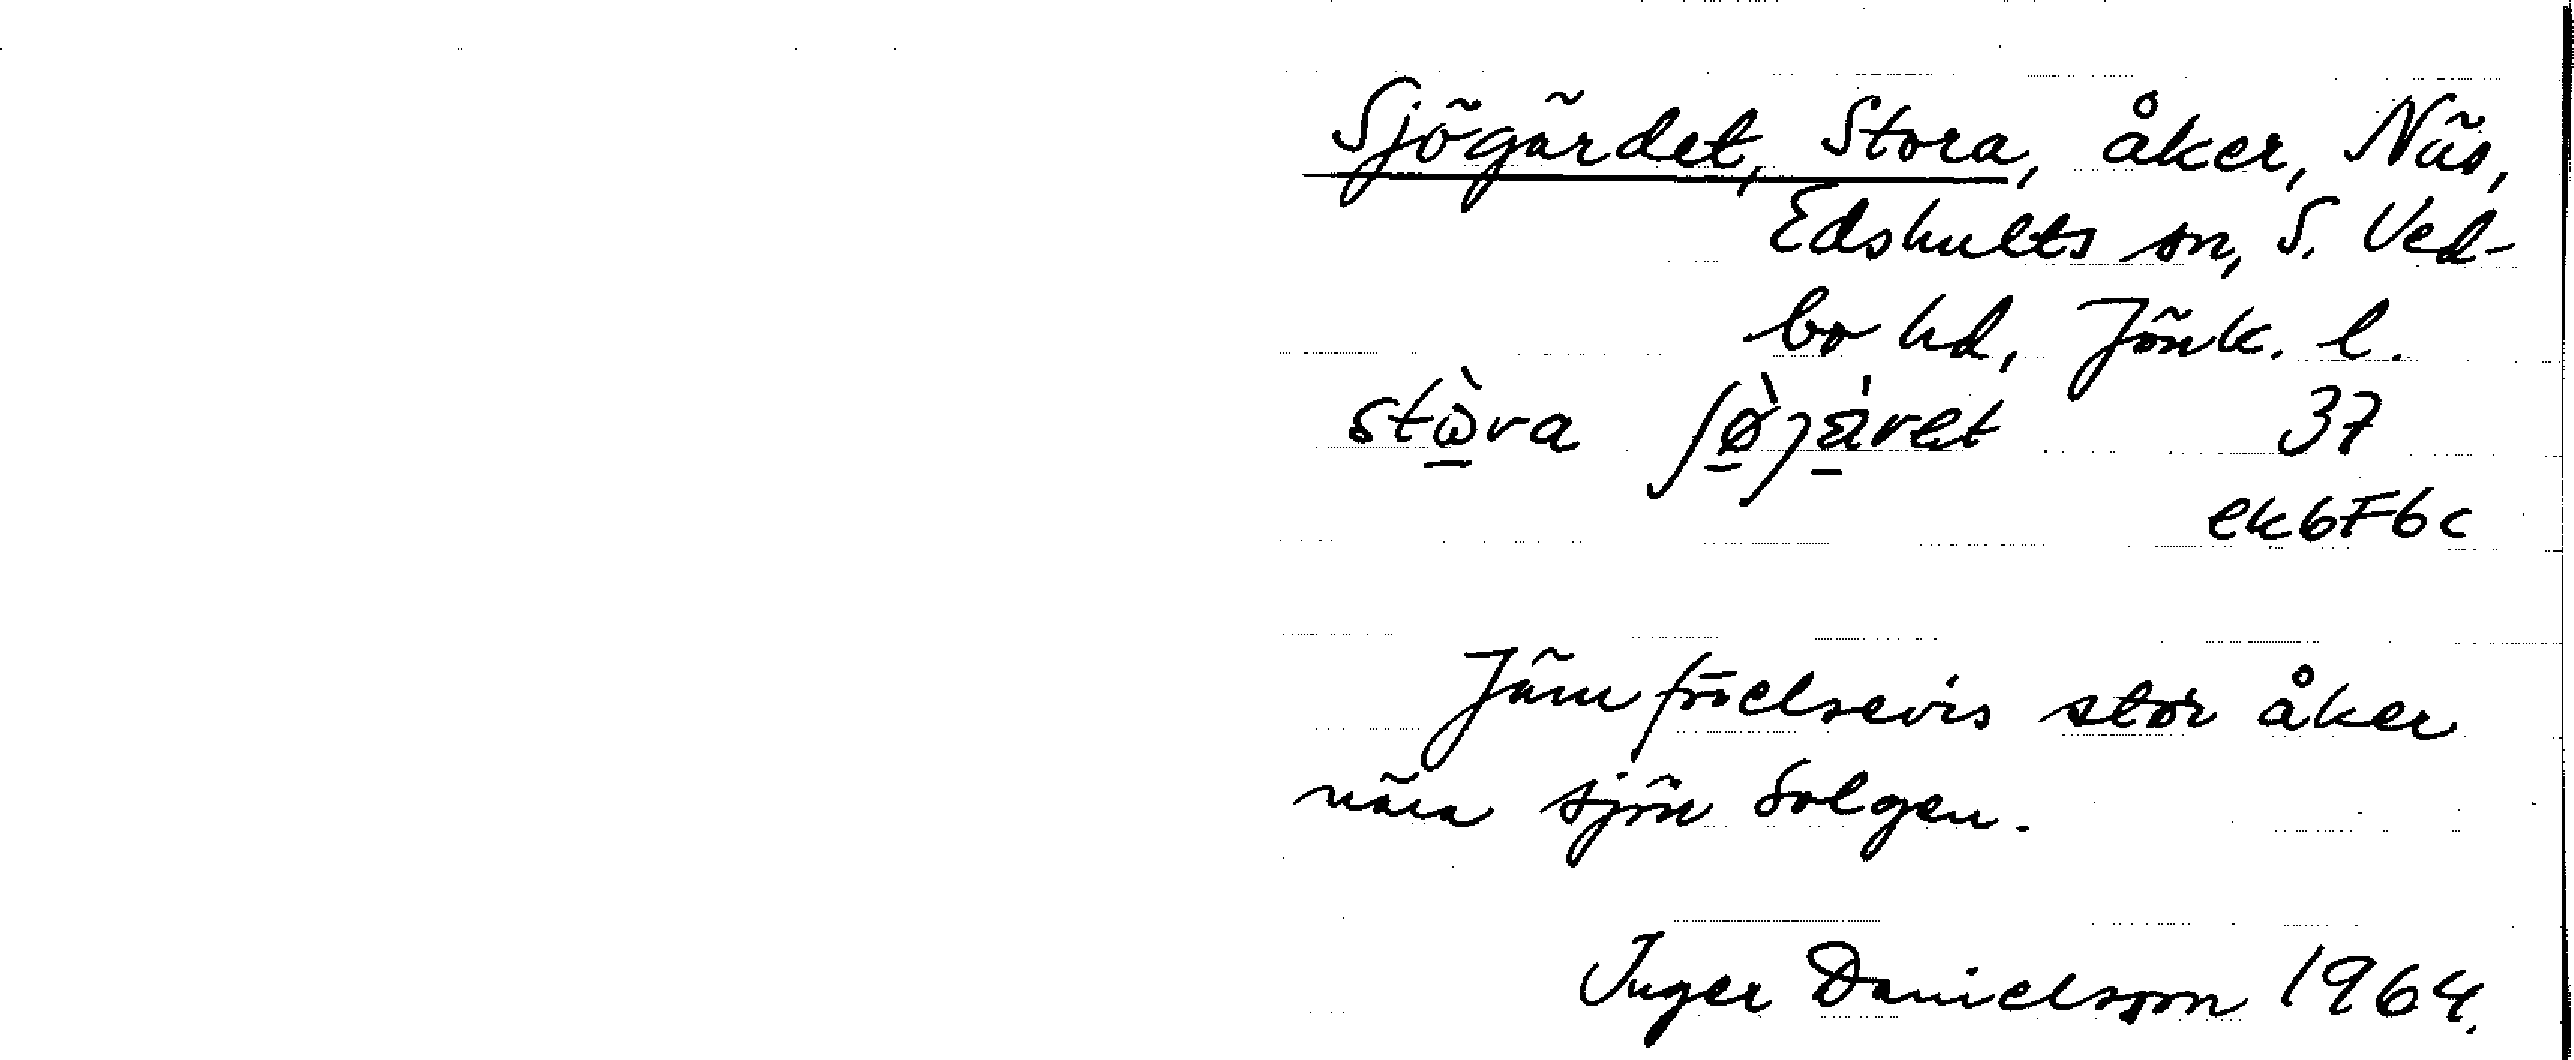 Sjögärdet, Stora, åker, Näs,
Edshults sn, S. Ved-
bo hd, Jönk. l.
stὼ̱ra ʃø̱̀ȷä̱̀ret 37
ek6F6c
Jämförelsevis stor åker
nära sjön Solgen.
Inger Danielsson 1964.